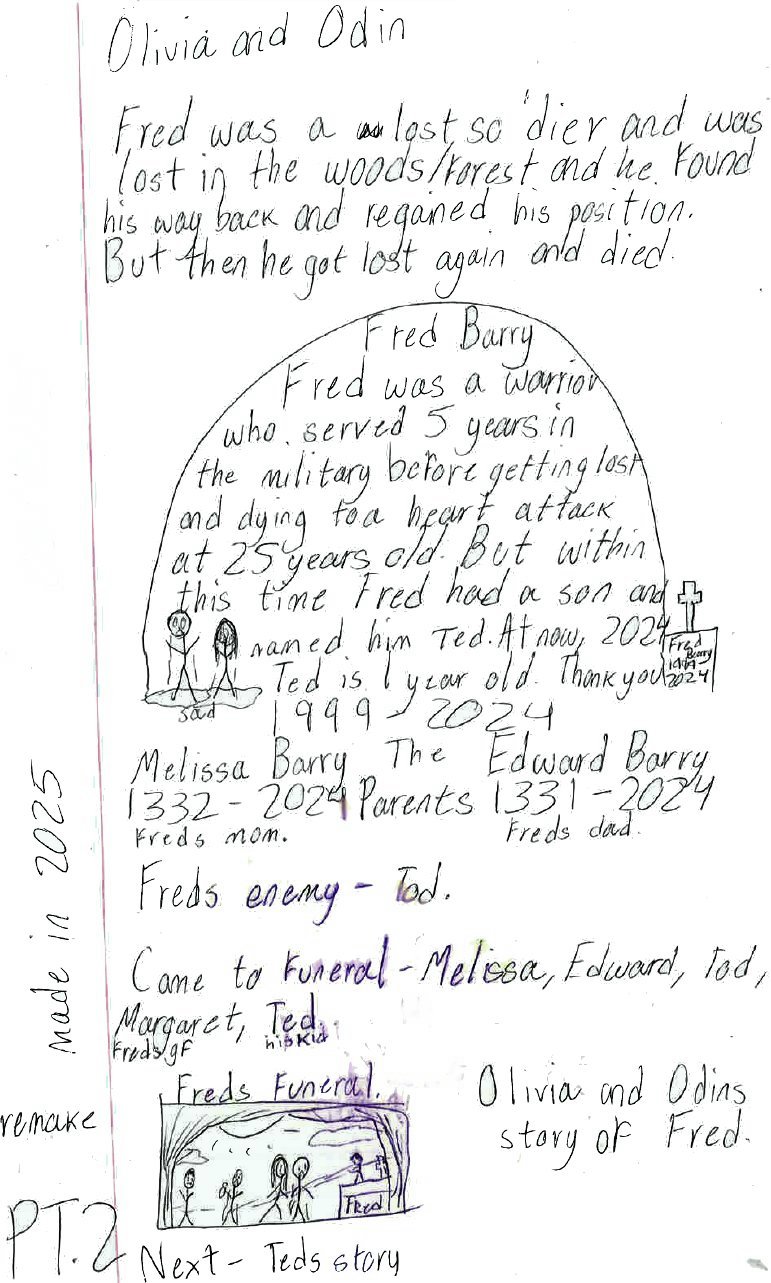 Olivia and Odin
Fred was a lost so'dier and was
lost in the woods/forest and he found
his way back and regained his position.
But then he got lost again and died.
Fred Barry
Fred was a warrior
who served 5 years in
the military before getting lost
and dying to a heart attack
at 25 years old. But within
this time Fred had a son and
named him Ted. At now, 2024
Ted is 1 year old. Thank you
1999-2024
sad
Fred
Barry
1999
2024
Melissa Barry The Edward Barry
1332-2024 Parents 1331-2024
Freds mom. Freds dad.
Freds enemy - Tod.
Came to Funeral - Melissa, Edward, Tod,
Margaret, Ted.
Freds gf his kid
Freds Funeral.
Fred
Olivia and Odins
story of Fred.
made in 2025
remake
PT.2
Next - Teds story